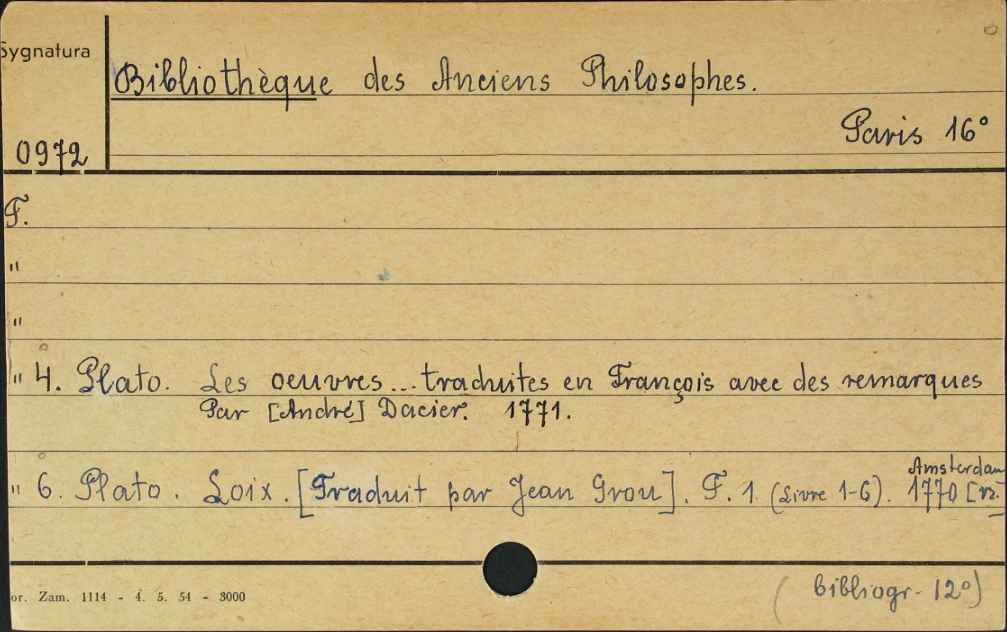 Sygnatura
Bibliothèque des Anciens Philosophes.
Paris 16°
0972
F.
"
"
" 4. Plato. Les oeuvres... traduites en François avec des remarques
Par [André] Dacier. 1771.
Amsterdam
" 6. Plato. Loix. [Traduit par Jean Grou]. F. 1. (Livre 1-6). 1770
or. Zam. 1114 - 4. 5. 54 - 3000
(bibliogr. 12°)